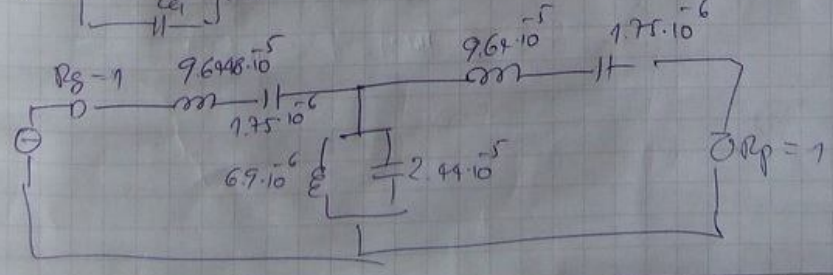 Rg = 1
9.6448·10^-5
1.75·10^-6
9.64·10^-5
1.75·10^-6
6.9·10^-6
2.44·10^-5
Rp = 1